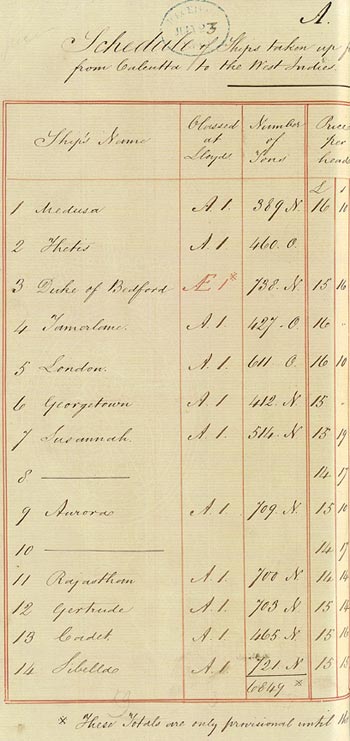 A.
Schedule of Ships taken up
from Calcutta to the West Indies
Ship's Name | Classed at Lloyds | Number of Tons | Price per head
£
1 Medusa A.1. 389 N. 16 10
2 Thetis A.1. 460. O.
3 Duke of Bedford Æ 1* 738. N. 15 16
4 Tamerlane. A.1. 427. O. 16 -
5 London. A.1. 611. O. 16 10
6 Georgetown A.1. 412. N. 15 -
7 Susannah. A.1. 514. N. 15 19
8 —— 14 17
9 Aurora A.1. 709. N. 15 10
10 —— 14 17
11 Rajasthan A.1. 700 N. 14 14
12 Gertrude A.1. 703 N. 15 14
13 Cadet. A.1. 465 N. 15 16
14 Sibella A.1. 721 N 15 15
6849 *
* These Totals are only provisional until